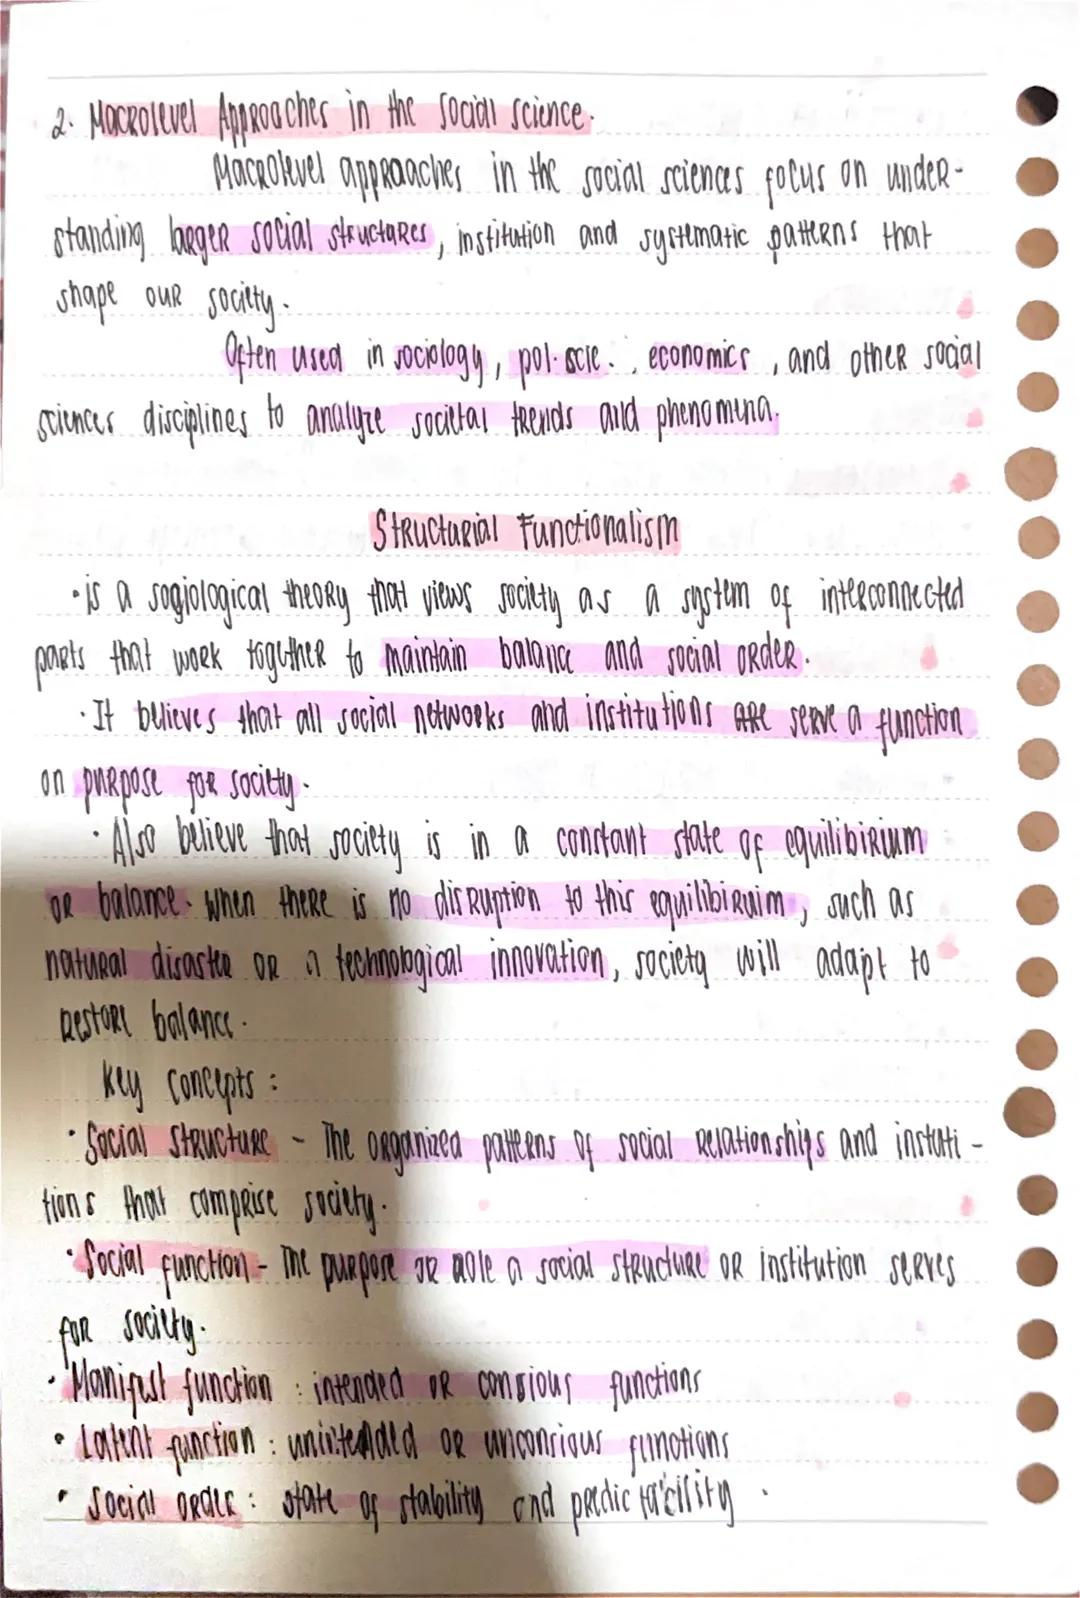 2. Macrolevel Approaches in the social science.
Macrolevel appraaches in the social sciences focus on under-
standing larger social structares, institution and systematic patterns that
shape our society.
Often used in sociology, pol. scie., economics, and other social
sciences disciplines to analyze societal trends and phenomena.
Structurial Functionalism
• is a sogiological theory that views society as a system of interconnected
parts that work together to maintain balance and social order.
• It believes that all social networks and institutions are serve a function
on purpose for society.
• Also believe that society is in a constant state of equilibirium
or balance. When there is no disruption to this equilibiruim, such as
natural disaster or a technological innovation, society will adapt to
restore balance.
Key concepts :
• Social structure - The organized patterns of social relationships and instuti-
tions that comprise society.
• Social function - The purpose or role a social structure or institution serves
for society.
• Manifest function : intended or consious functions
• Latent function : unintended or unconsious functions
• Social order : state of stability and predictability.